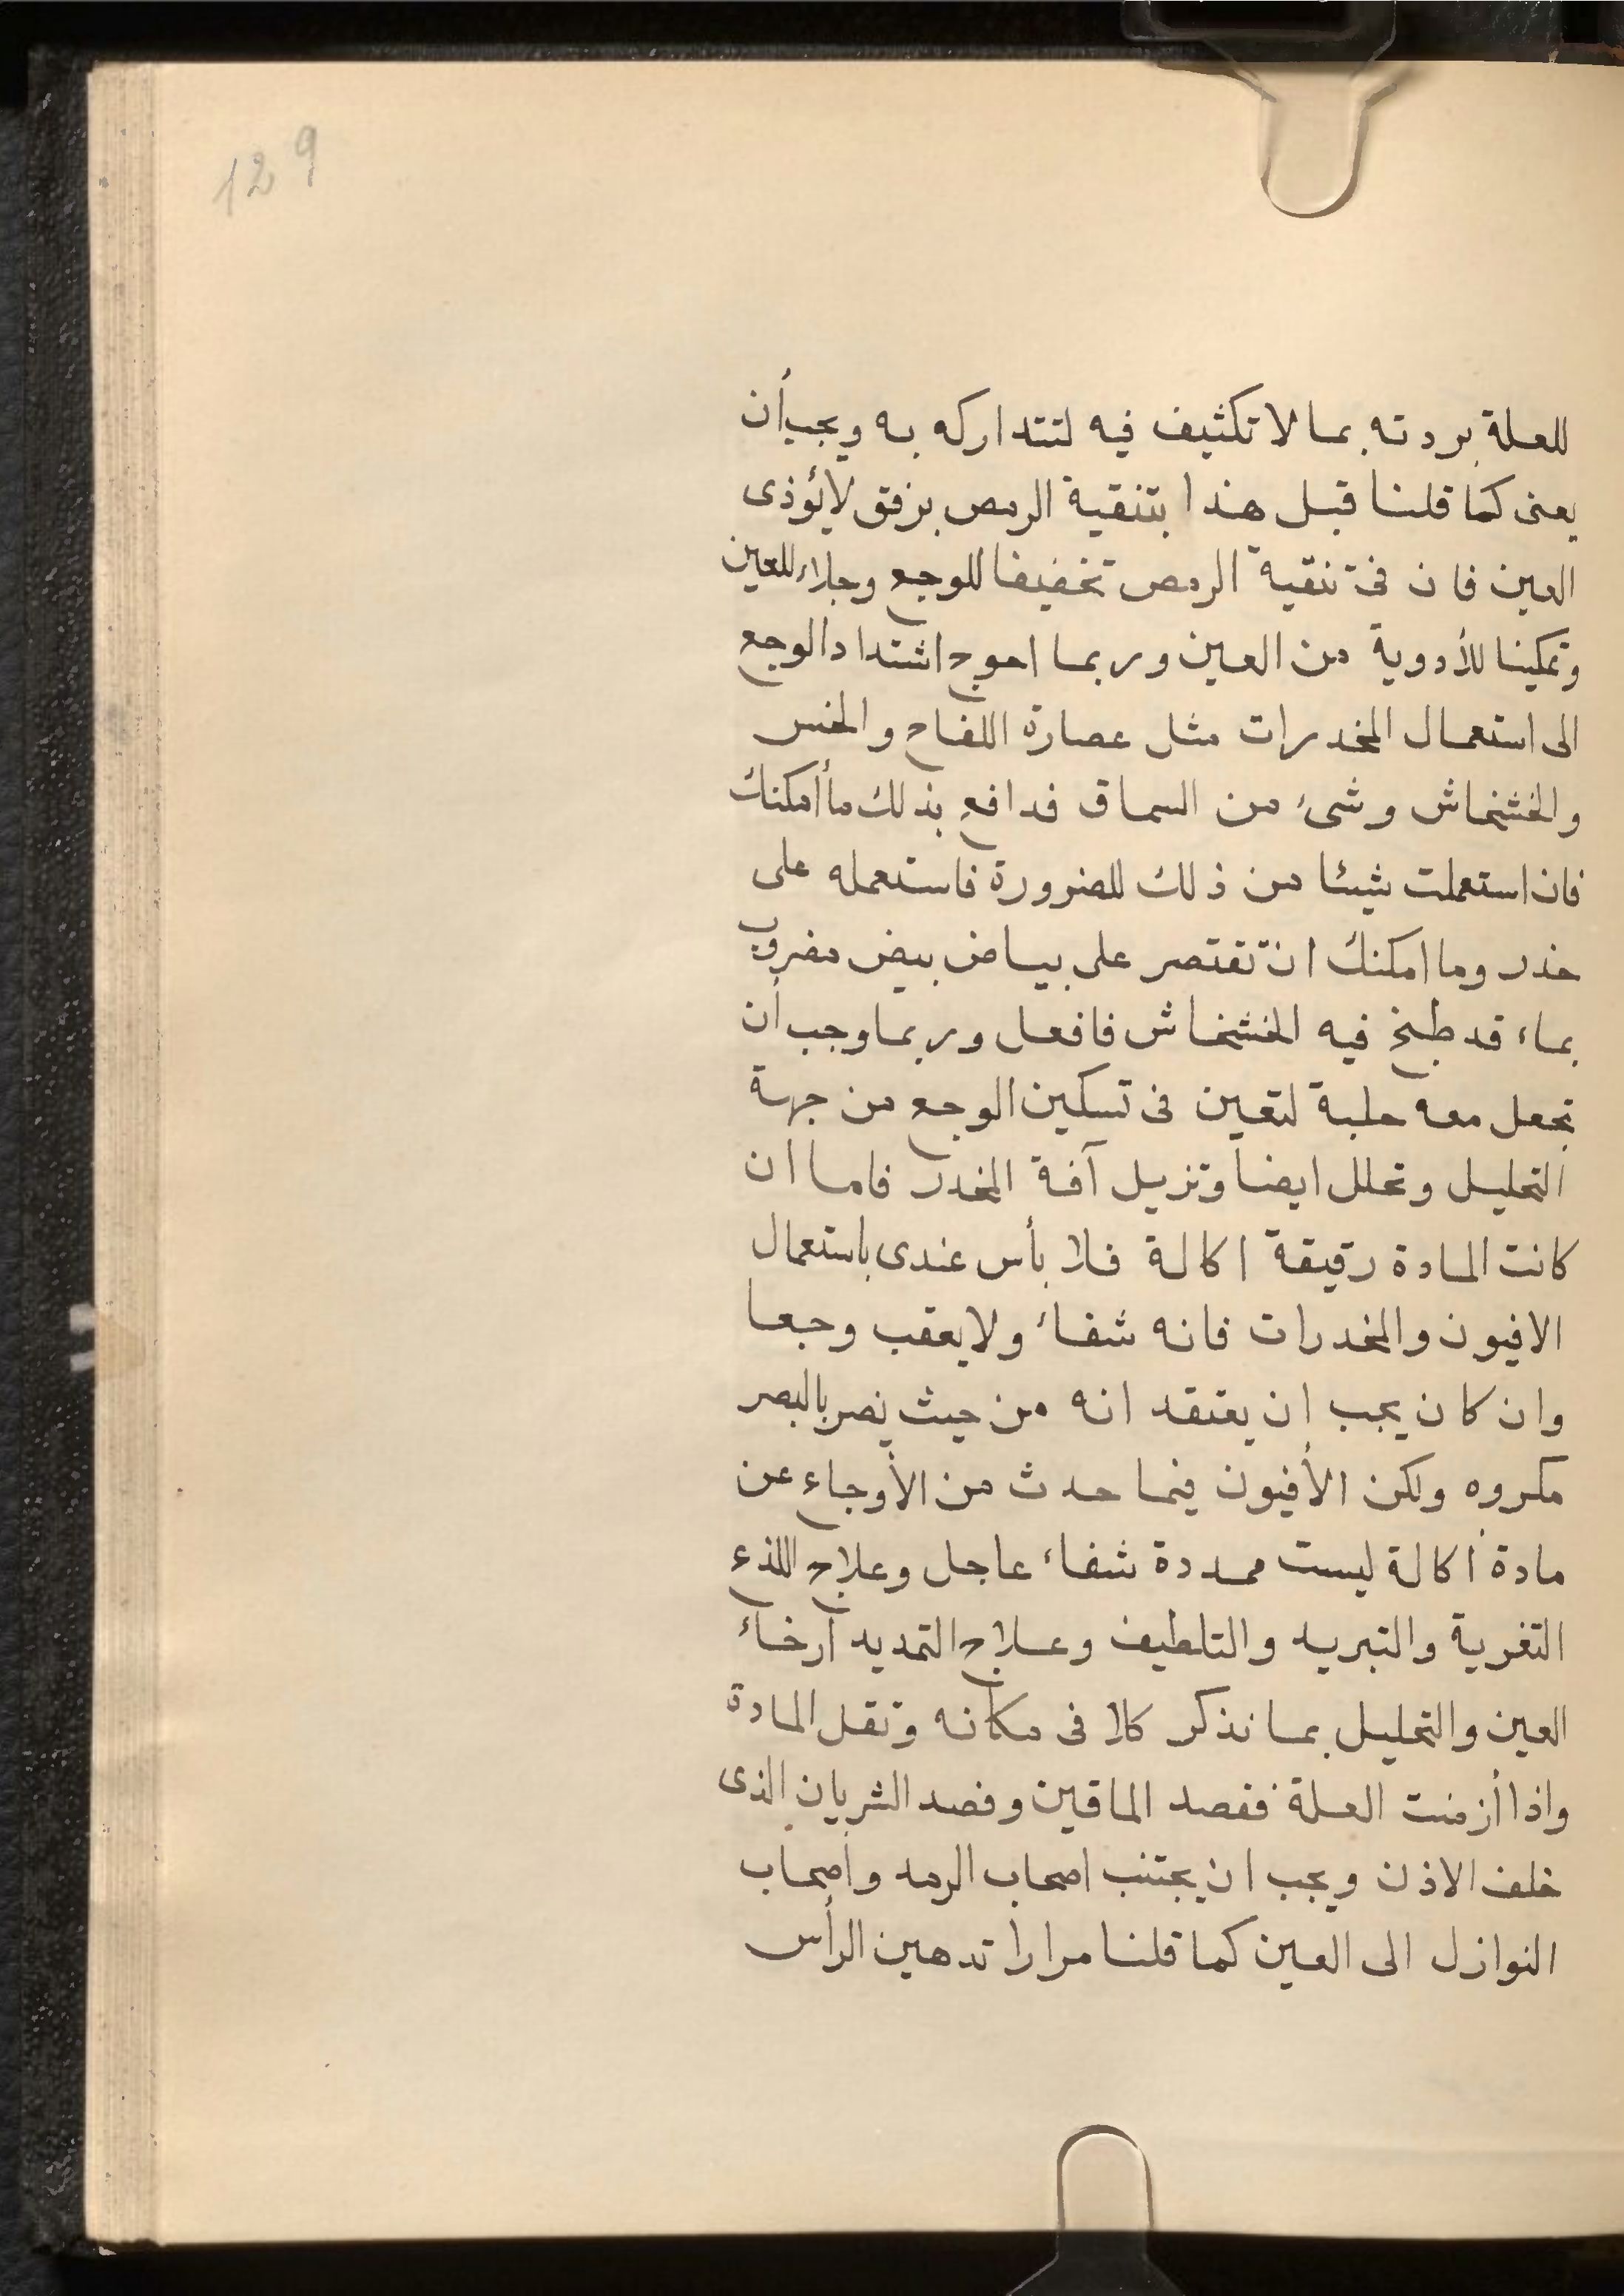 129
للعلة بردته بما لا تكثيف فيه لتتداركه به ويجب أن
يعنى كما قلنا قبل هذا بتنقية الرمص برفق لا يؤذى
العين فان فى تنقية الرمص تخفيفا للوجع وجلاء للعين
وتمكينا للأدوية من العين وربما احوج اشتداد الوجع
الى استعمال المخدرات مثل عصارة اللفاح والخس
والخشخاش وشىء من السماق فدافع بذلك ما أمكنك
فان استعملت شيئا من ذلك للضرورة فاستعمله على
حذر وما امكنك ان تقتصر على بياض بيض مضروب
بماء قد طبخ فيه الخشخاش فافعل وربما وجب أن
تجعل معه حلبة لتعين فى تسكين الوجع من جهة
التحليل وتحلل ايضا وتزيل آفة المخدر فاما ان
كانت المادة رقيقة اكالة فلا بأس عندى باستعمال
الافيون والمخدرات فانه شفاء ولا يعقب وجعا
وان كان يجب ان يعتقد انه من حيث يضر بالبصر
مكروه ولكن الأفيون فيما حدث من الأوجاع عن
مادة أكالة ليست ممددة شفاء عاجل وعلاج اللذع
التغرية والتبريد والتلطيف وعلاج التمديد ارخاء
العين والتحليل بما نذكر كلا فى مكانه ونقل المادة
واذا أزمنت العلة ففصد الماقين وفصد الشريان الذى
خلف الاذن ويجب ان يجتنب اصحاب الرمد وأصحاب
النوازل الى العين كما قلنا مرارا تدهين الرأس